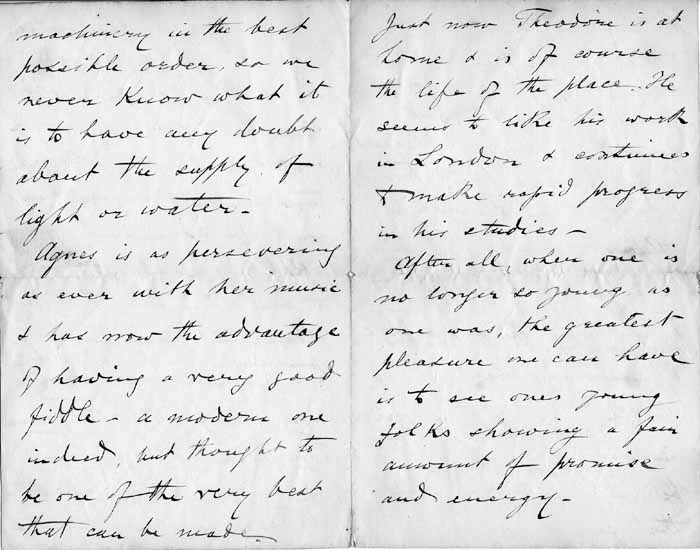 machinery in the best
possible order, so we
never know what it
is to have any doubt
about the supply of
light or water -
Agnes is as persevering
as ever with her music
& has now the advantage
of having a very good
fiddle - a modern one
indeed, but thought to
be one of the very best
that can be made.
Just now Theodore is at
home & is of course
the life of the place. He
seems to like his work
in London & continues
to make rapid progress
in his studies -
After all, when one is
no longer so young as
one was, the greatest
pleasure one can have
is to see ones young
folks showing a fair
amount of promise
and energy -